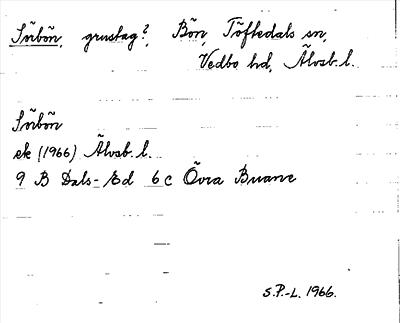 Sörbön, grustag?, Bön, Töftedals sn,
Vedbo hd, Älvsb. l.
Sörbön
ek (1966) Älvsb. l.
9 B Dals-Ed 6 c Övra Buane
S.P.-L. 1966.